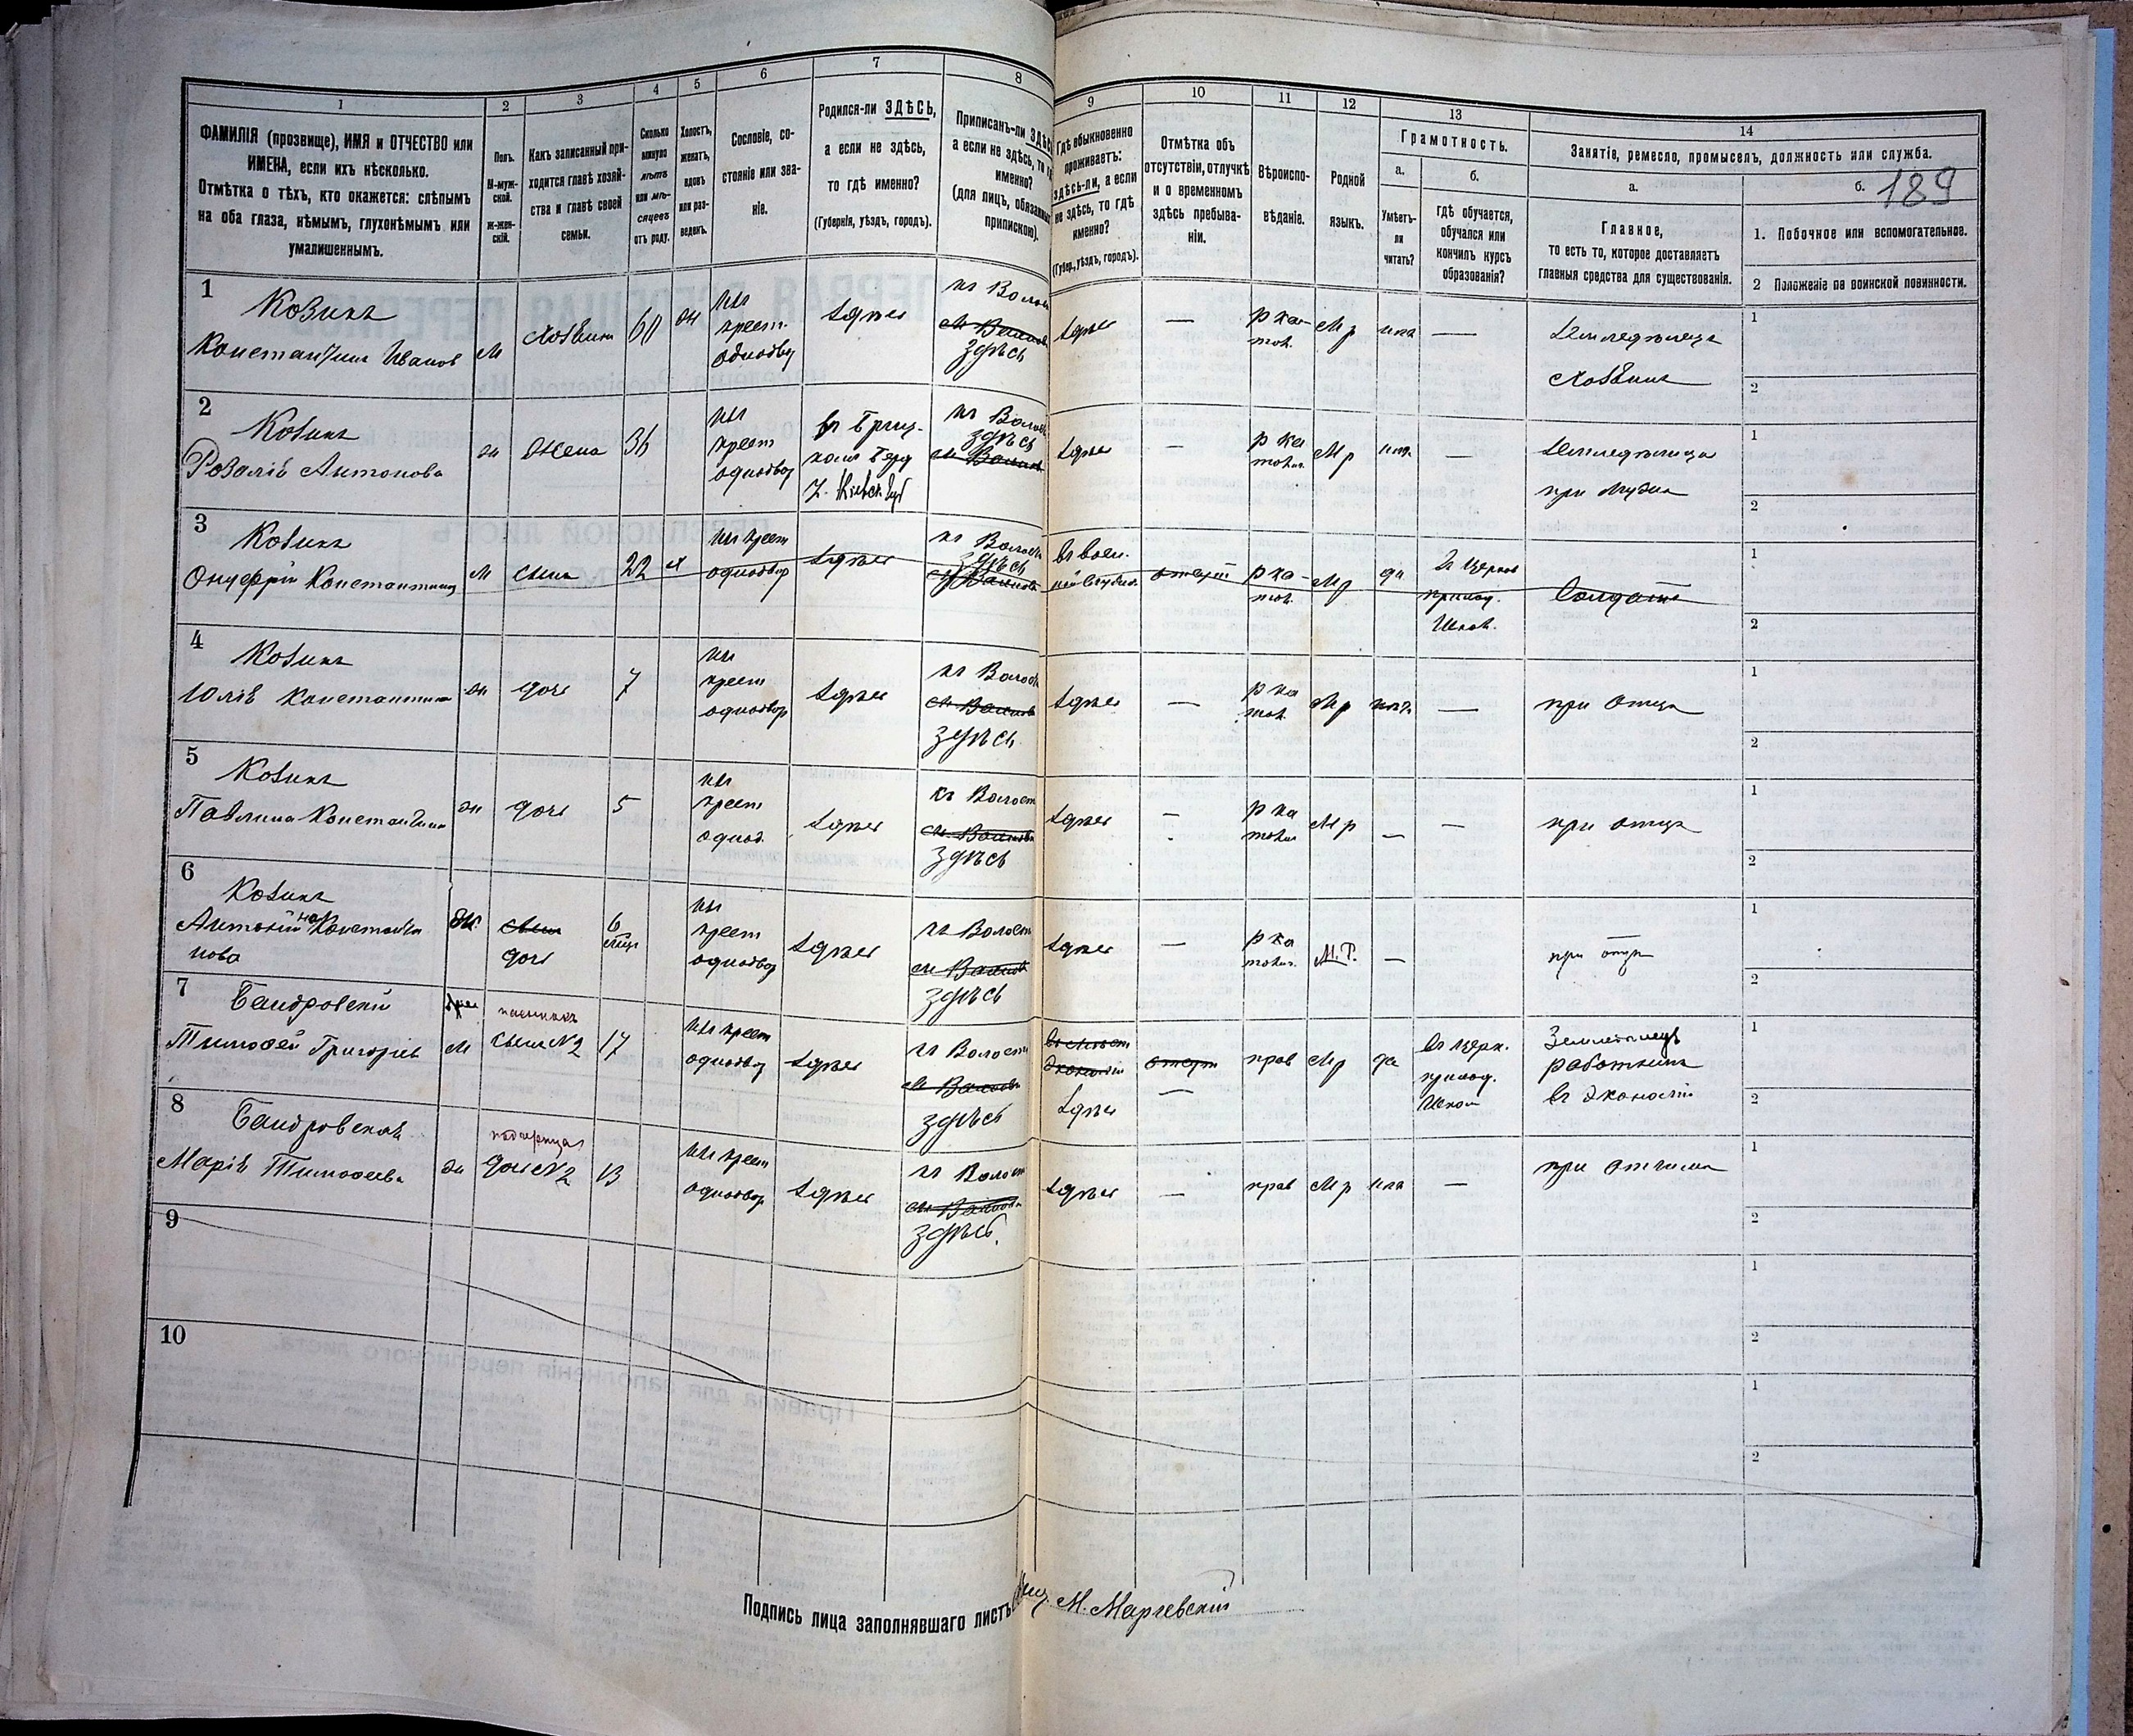 1
2
3
4
5
6
7
8
9
10
11
12
13
14
ФАМИЛІЯ (прозвище), ИМЯ и ОТЧЕСТВО или
ИМЕНА, если ихъ нѣсколько.
Отмѣтка о тѣхъ, кто окажется: слѣпымъ
на оба глаза, нѣмымъ, глухонѣмымъ или
умалишеннымъ.
Полъ.
М-муж-
ской.
Ж-жен-
скій.
Какъ записанный при-
ходится главѣ хозяй-
ства и главѣ своей
семьи.
Сколько
минуло
лѣтъ
или мѣ-
сяцевъ
отъ роду.
Холостъ,
женатъ,
вдовъ
или раз-
веденъ.
Сословіе, со-
стояніе или зва-
ніе.
Родился-ли ЗДѢСЬ,
а если не здѣсь,
то гдѣ именно?
(Губернія, уѣздъ, городъ).
Приписанъ-ли
а если не здѣсь, то
именно?
(для лицъ,
припискою).
Гдѣ обыкновенно
проживаетъ:
здѣсь-ли, а если
не здѣсь, то гдѣ
именно?
(Губер., уѣздъ, городъ).
Отмѣтка объ
отсутствіи, отлучкѣ
и о временномъ
здѣсь пребыва-
ніи.
Вѣроиспо-
вѣданіе.
Родной
языкъ.
Грамотность.
а.
Умѣетъ-
ли
читать?
б.
гдѣ обучается,
обучался или
кончилъ курсъ
образованія?
Занятіе, ремесло, промыселъ, должность или служба.
а.
Главное,
то есть то, которое доставляетъ
главныя средства для существованія.
б.
189
1. Побочное или вспомогательное.
2 Положеніе по воинской повинности.
1
Козикъ
Константинъ Иванов
м
хозяинъ
60
ж
изъ
крест.
однодв
здѣсь
къ Волос
здѣсь
здѣсь
—
р ка-
тол.
Мр
нѣт
—
Земледѣлецъ
хозяинъ
1
2
2
Козикъ
Розалія Антонова
ж
жена
36
изъ
крест
однодвор
Кіевск. губ
къ Волос
здѣсь
здѣсь
—
р ка
толич.
Мр
нѣт
—
Земледѣлица
при мужѣ
1
2
3
Козикъ
Онуфрій Константинов
м
сынъ
22
х
изъ крест
однодвор
здѣсь
къ Волос
здѣсь
р ка-
тол.
Мр
да
въ церков
приход.
школ.
Солдатъ
1
2
4
Козикъ
Юлія Константин
ж
дочь
7
изъ
крест
однодвор
здѣсь
къ Волост
здѣсь
здѣсь
—
р ка
тол.
Мр
нѣт
—
при отцѣ
1
2
5
Козикъ
Павлина Константин
ж
дочь
5
изъ
крест
однод.
здѣсь
къ Волост
здѣсь
здѣсь
—
р ка
толич
Мр
—
—
при отцѣ
1
2
6
Козикъ
Антонина Константи
нова
ж.
сынъ
дочь
6
мѣс
изъ
крест
однодвор
здѣсь
къ Волост
здѣсь
здѣсь
—
р ка
толич.
М.Р.
—
при отцѣ
1
2
7
Бандровскій
Тимофей Григоріев
м
пасынокъ
сынъ N2
17
изъ крест
однодвор
здѣсь
къ Волост
здѣсь
здѣсь
—
прав
Мр
да
въ церк.
приход.
школ
работникъ
въ экономіи
1
2
8
Бандровская
Марія Тимофеева
ж
падчерица
дочь N2
13
изъ крест
однодвор
здѣсь
къ Волост
здѣсь.
здѣсь
—
прав
Мр
нѣт
—
при отчимѣ
1
2
9
1
2
10
1
2
Подпись лица заполнявшаго листъ
М. Марчевскій